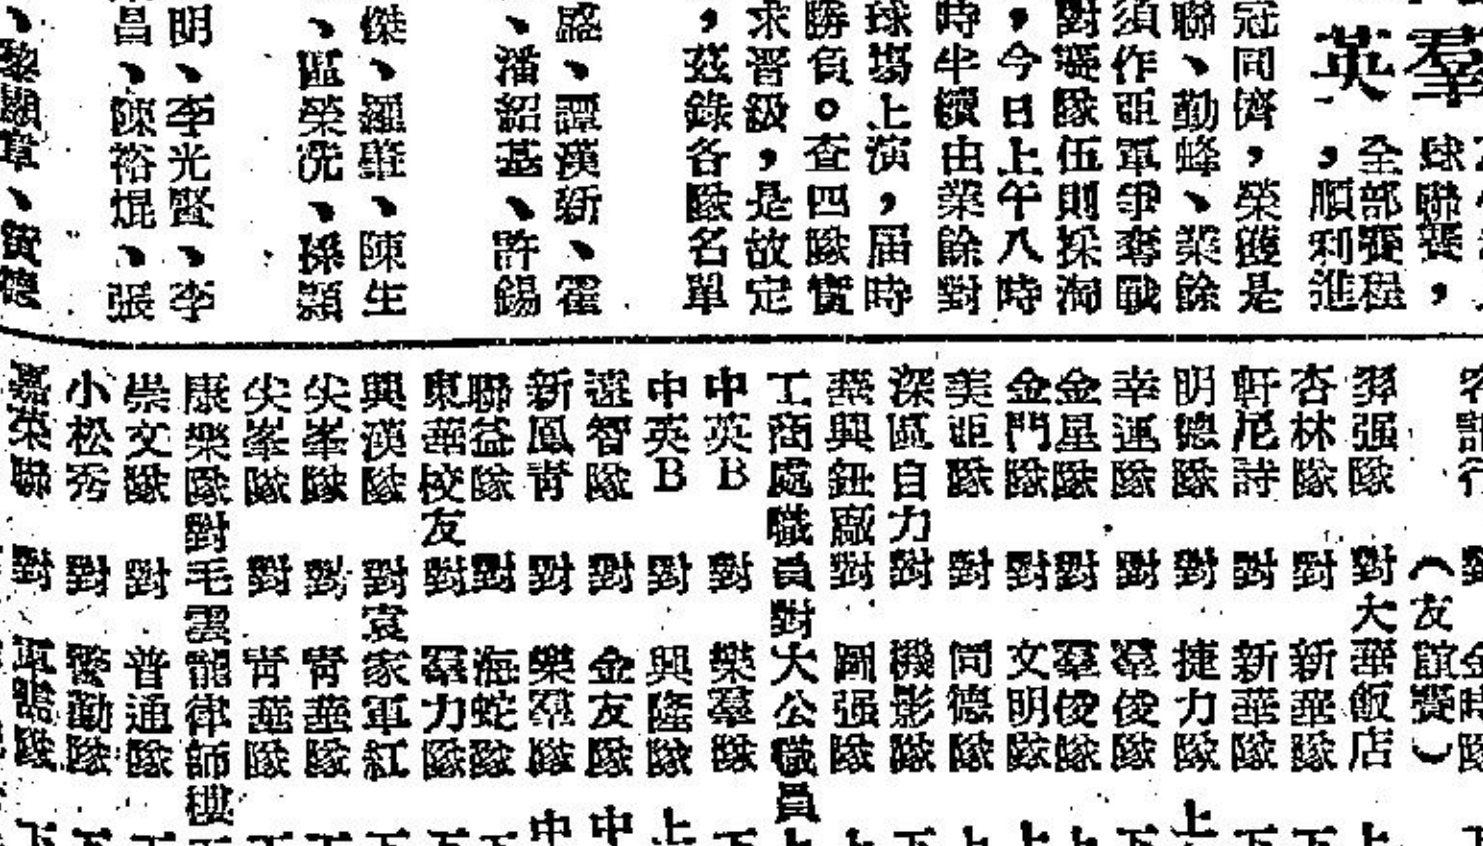 羣英
球聯賽，
全部賽程
，順利進
冠同儕，榮獲是
聯、勤蜂、業餘
須作亞軍爭奪戰
對壘隊伍則採淘
，今日上午八時
時半續由業餘對
球場上演，届時
勝負。查四隊實
求晋級，是故定
，茲錄各隊名單
盛、譚漢新、霍
、潘紹基、許錫
傑、羅華、陳生
、區榮洗、孫顯
明、李光賢、李
昌、陳裕焜、張
、黎顯章、黃德
（友誼賽）
羿强隊 對大華飯店
杏林隊 對 新華隊
軒尼詩 對 新華隊
明德隊 對 捷力隊 上
幸運隊 對 羣俊隊 下
金星隊 對 羣俊隊 上
金門隊 對 文明隊 上
美亞隊 對 同德隊 上
深區自力 對 機影隊 下
華興鈕廠 對 圖强隊 上
工商處職員對大公職員 上
中英B 對 樂羣隊 下
中英B 對 興隆隊 上
遠智隊 對 金友隊 中
新鳳青 對 樂羣隊 中
聯益隊 對 海蛇隊 下
東華校友 對 羣力隊 下
興漢隊 對袁家軍紅 下
尖峯隊 對 青華隊 下
尖峯隊 對 青華隊 下
康樂隊對毛雲龍律師樓 下
崇文隊 對 普通隊 下
小松秀 對 警勤隊 下
嘉榮聯 對 隊 下